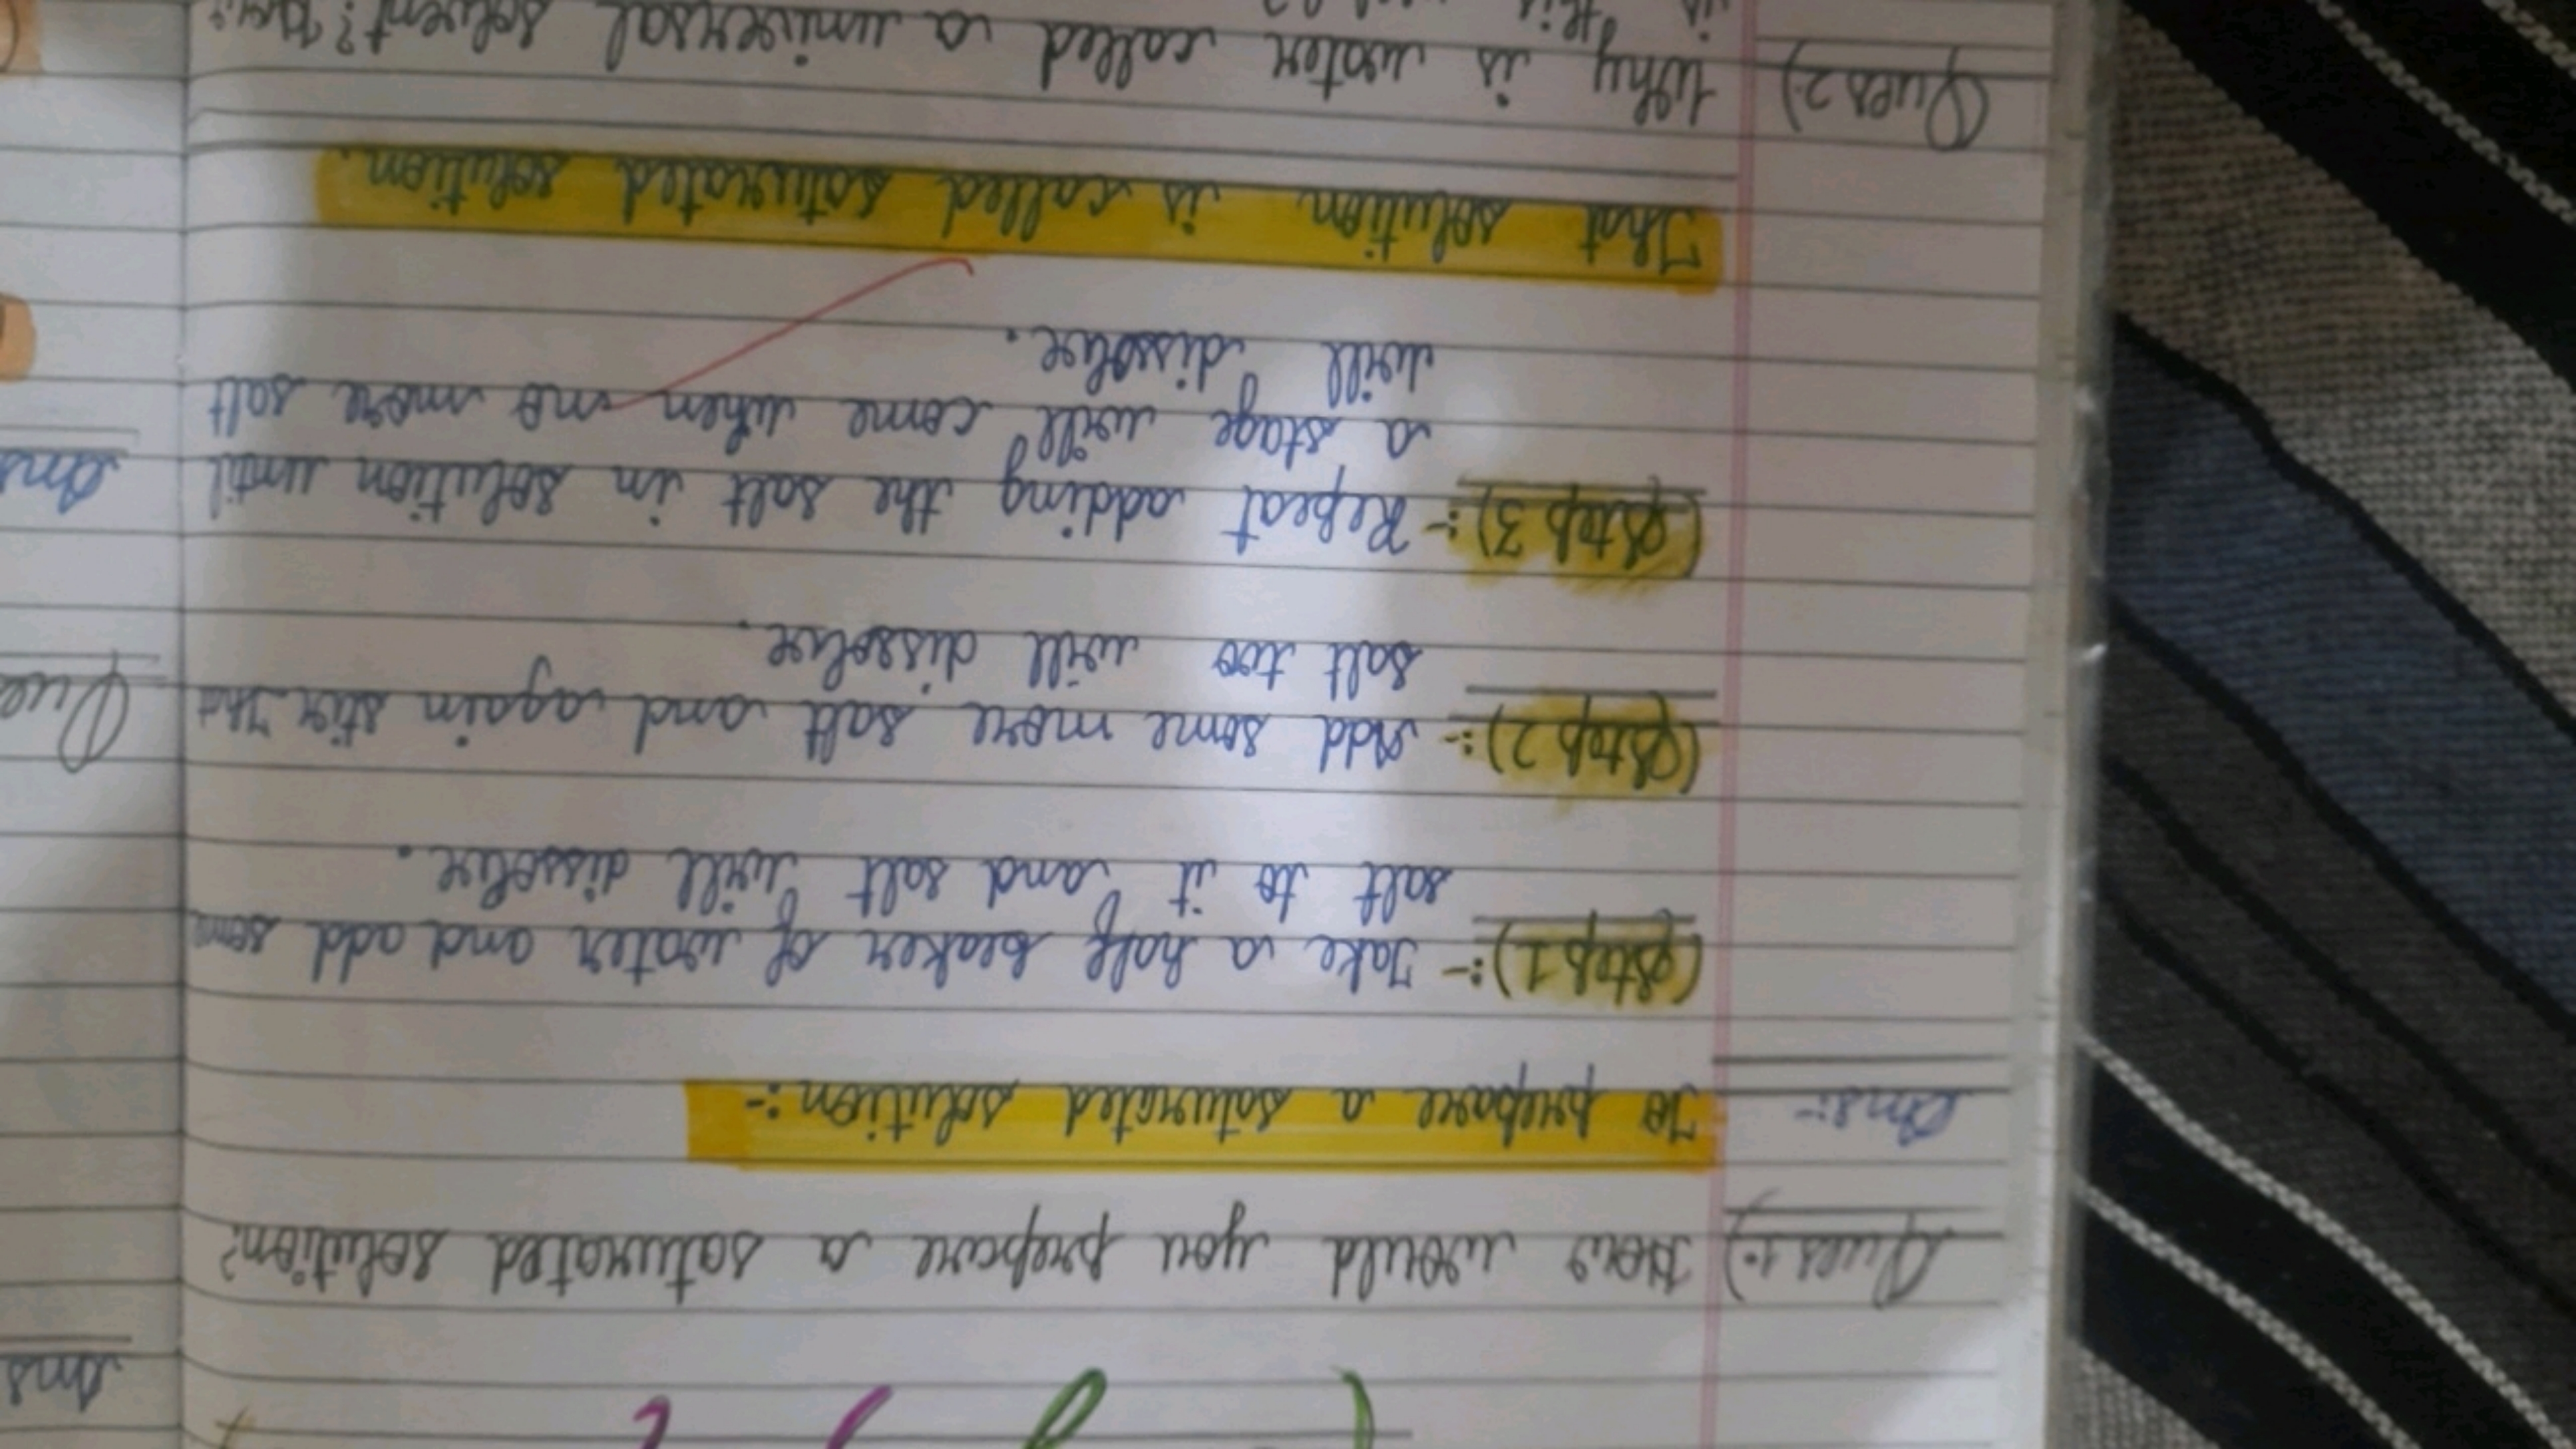 Ques 1.) How would you prepare a saturated solution?
Ans:- To prepare a saturated solution:-
(Step 1):- Take a half beaker of water and add some
salt to it and salt will dissolve.
(Step 2):- Add some more salt and again stir. That
salt too will dissolve.
(Step 3):- Repeat adding the salt in solution until
a stage will come when no more salt
will dissolve.
That solution is called saturated solution.
Ques 2.) Why is water called a universal solvent? How
is this
Ans
Ques
Ans